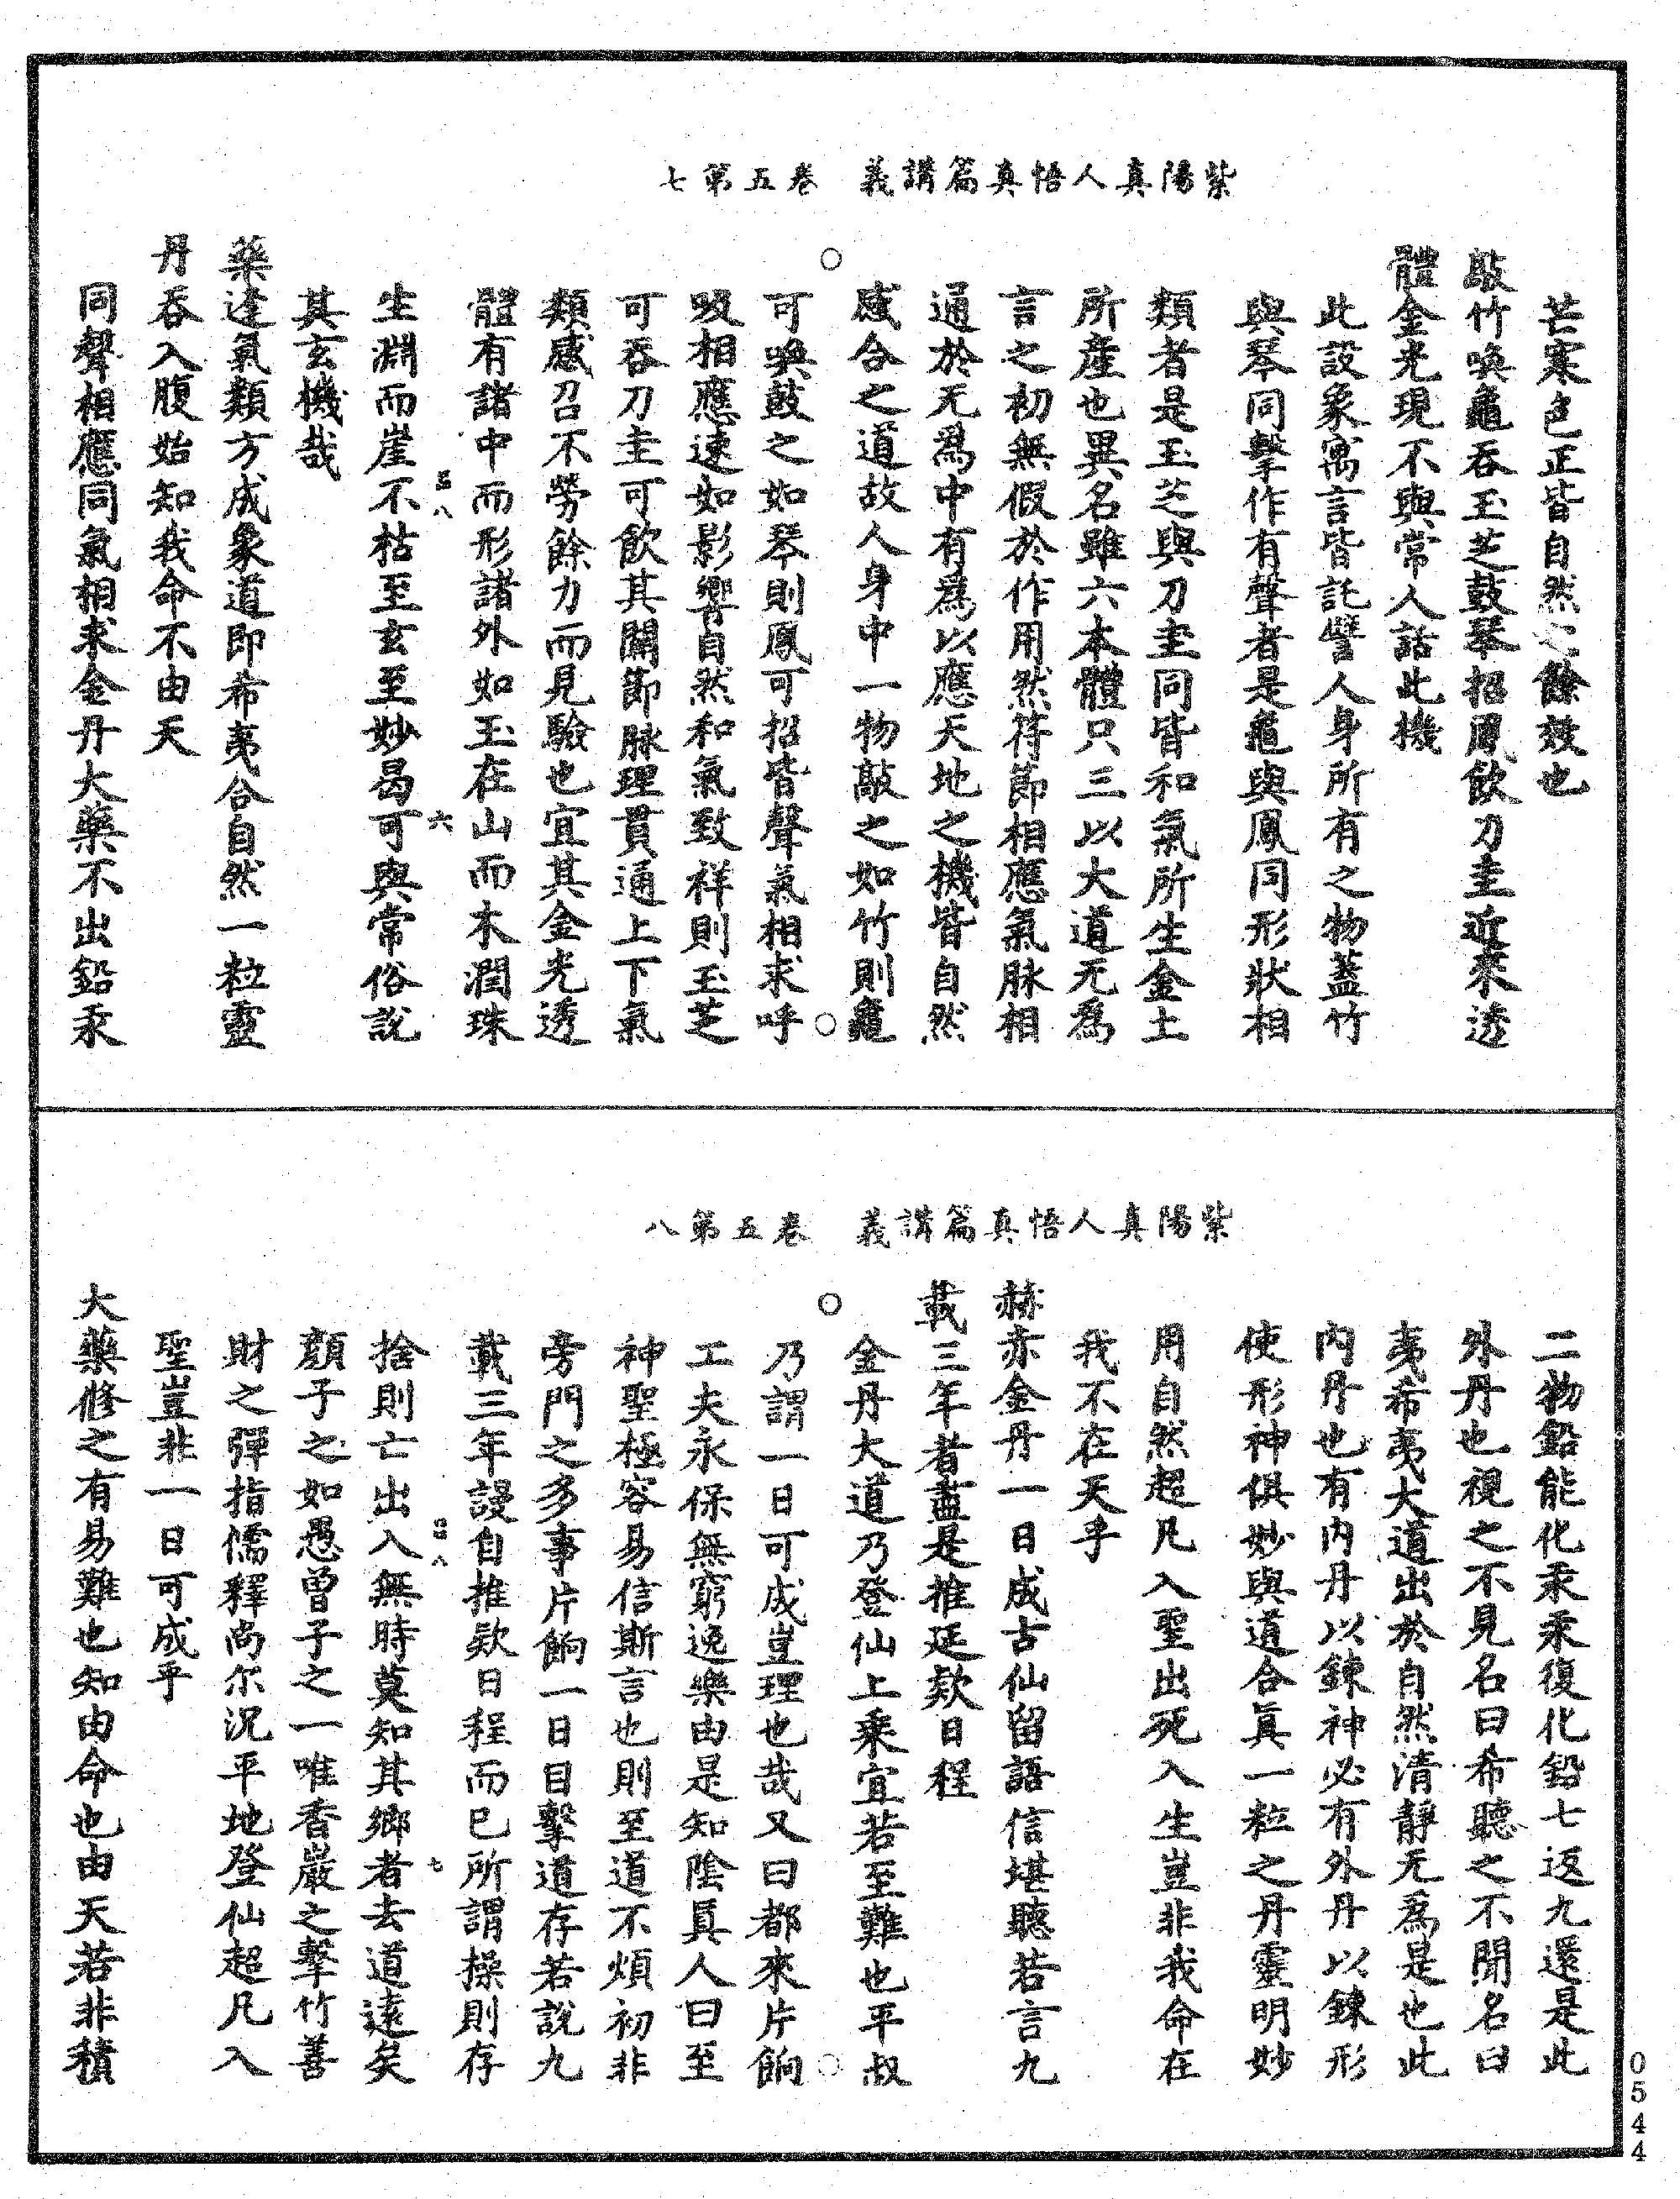 紫陽真人悟真篇講義　卷五第七
芒寒色正皆自然之餘效也
敲竹喚龜吞玉芝鼓琴招鳳飲刀圭近來透
體金光現不與常人話此機
此設象寓言皆託譬人身所有之物蓋竹
與琴同擊作有聲者是龜與鳳同形狀相
類者是玉芝與刀圭同皆和氣所生金土
所產也異名雖六本體只三以大道无為
言之初無假於作用然符節相應氣脉相
通於无為中有為以應天地之機皆自然
感合之道故人身中一物敲之如竹則龜
可喚鼓之如琴則鳳可招皆聲氣相求呼
吸相應速如影響自然和氣致祥則玉芝
可吞刀圭可飲其關節脉理貫通上下氣
類感召不勞餘力而見驗也宜其金光透
體有諸中而形諸外如玉在山而木潤珠
生淵而崖不枯至玄至妙曷可與常俗說
其玄機哉
藥逢氣類方成象道即希夷合自然一粒靈
丹吞入腹始知我命不由天
同聲相應同氣相求金丹大藥不出鉛汞
紫陽真人悟真篇講義　卷五第八
二物鉛能化汞汞復化鉛七返九還是此
外丹也視之不見名曰希聽之不聞名曰
夷希夷大道出於自然清靜无為是也此
內丹也有內丹以鍊神必有外丹以鍊形
使形神俱妙與道合真一粒之丹靈明妙
用自然超凡入聖出死入生豈非我命在
我不在天乎
赫赤金丹一日成古仙留語信堪聽若言九
載三年者盡是推延欵日程
金丹大道乃登仙上乘宜若至難也平叔
乃謂一日可成豈理也哉又曰都來片餉
工夫永保無窮逸樂由是知陰真人曰至
神聖極容易信斯言也則至道不煩初非
旁門之多事片餉一日目擊道存若說九
載三年謾自推欵日程而已所謂操則存
捨則亡出入無時莫知其鄉者去道遠矣
顏子之如愚曾子之一唯香嚴之擊竹善
財之彈指儒釋尚尔況平地登仙超凡入
聖豈非一日可成乎
大藥修之有易難也知由命也由天若非積
六
七
0544